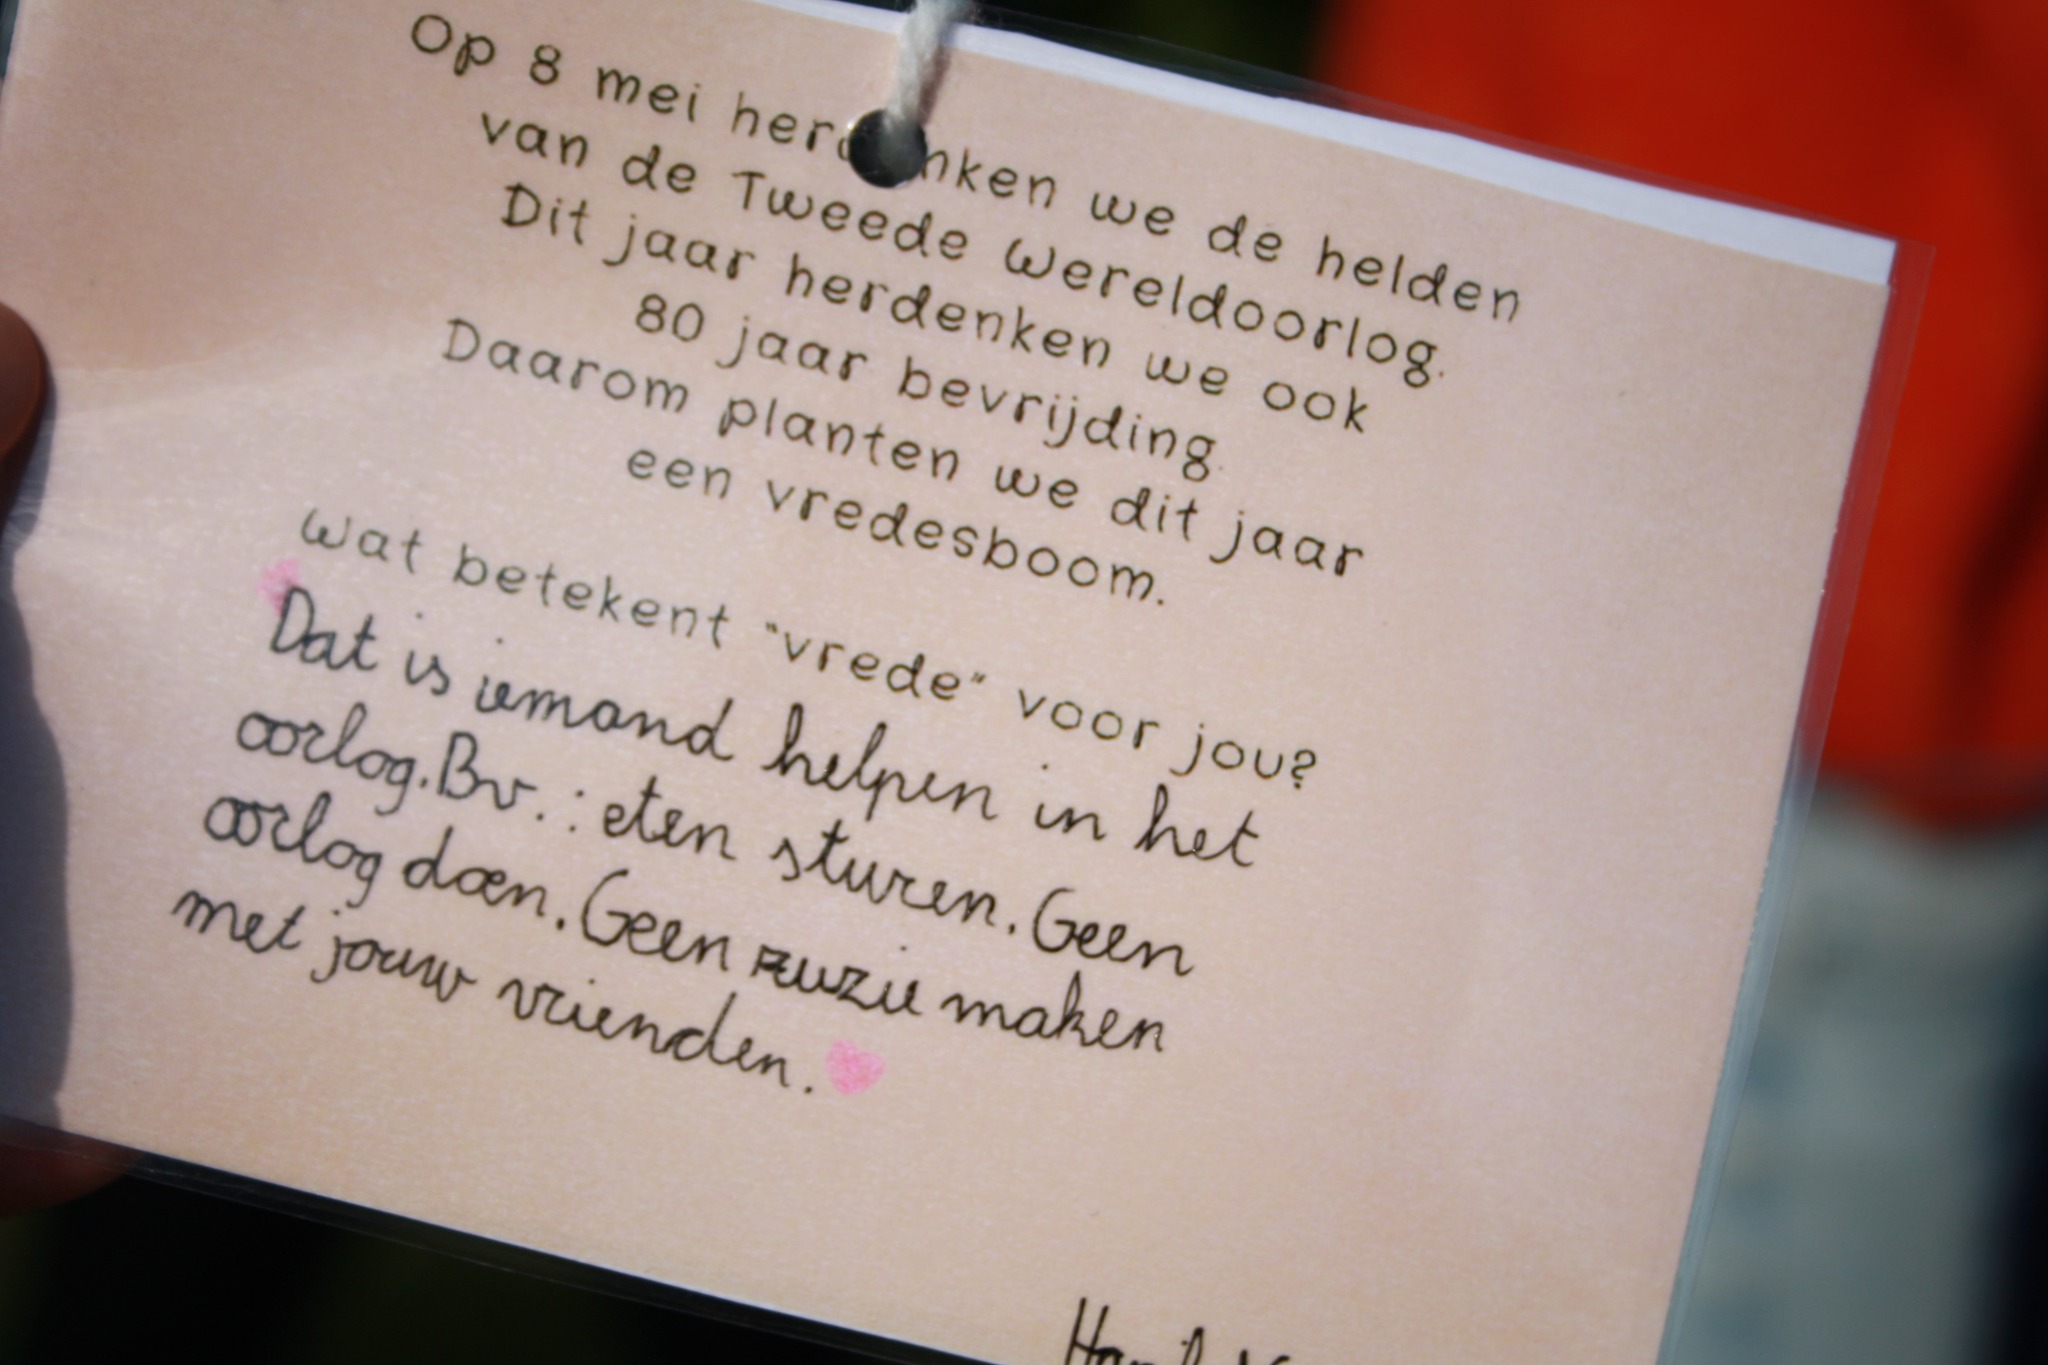 Op 8 mei herdenken we de helden
van de Tweede Wereldoorlog.
Dit jaar herdenken we ook
80 jaar bevrijding.
Daarom planten we dit jaar
een vredesboom.
Wat betekent "vrede" voor jou?
Dat is iemand helpen in het
oorlog. Bv.: eten sturen. Geen
oorlog doen. Geen ruzie maken
met jouw vrienden.